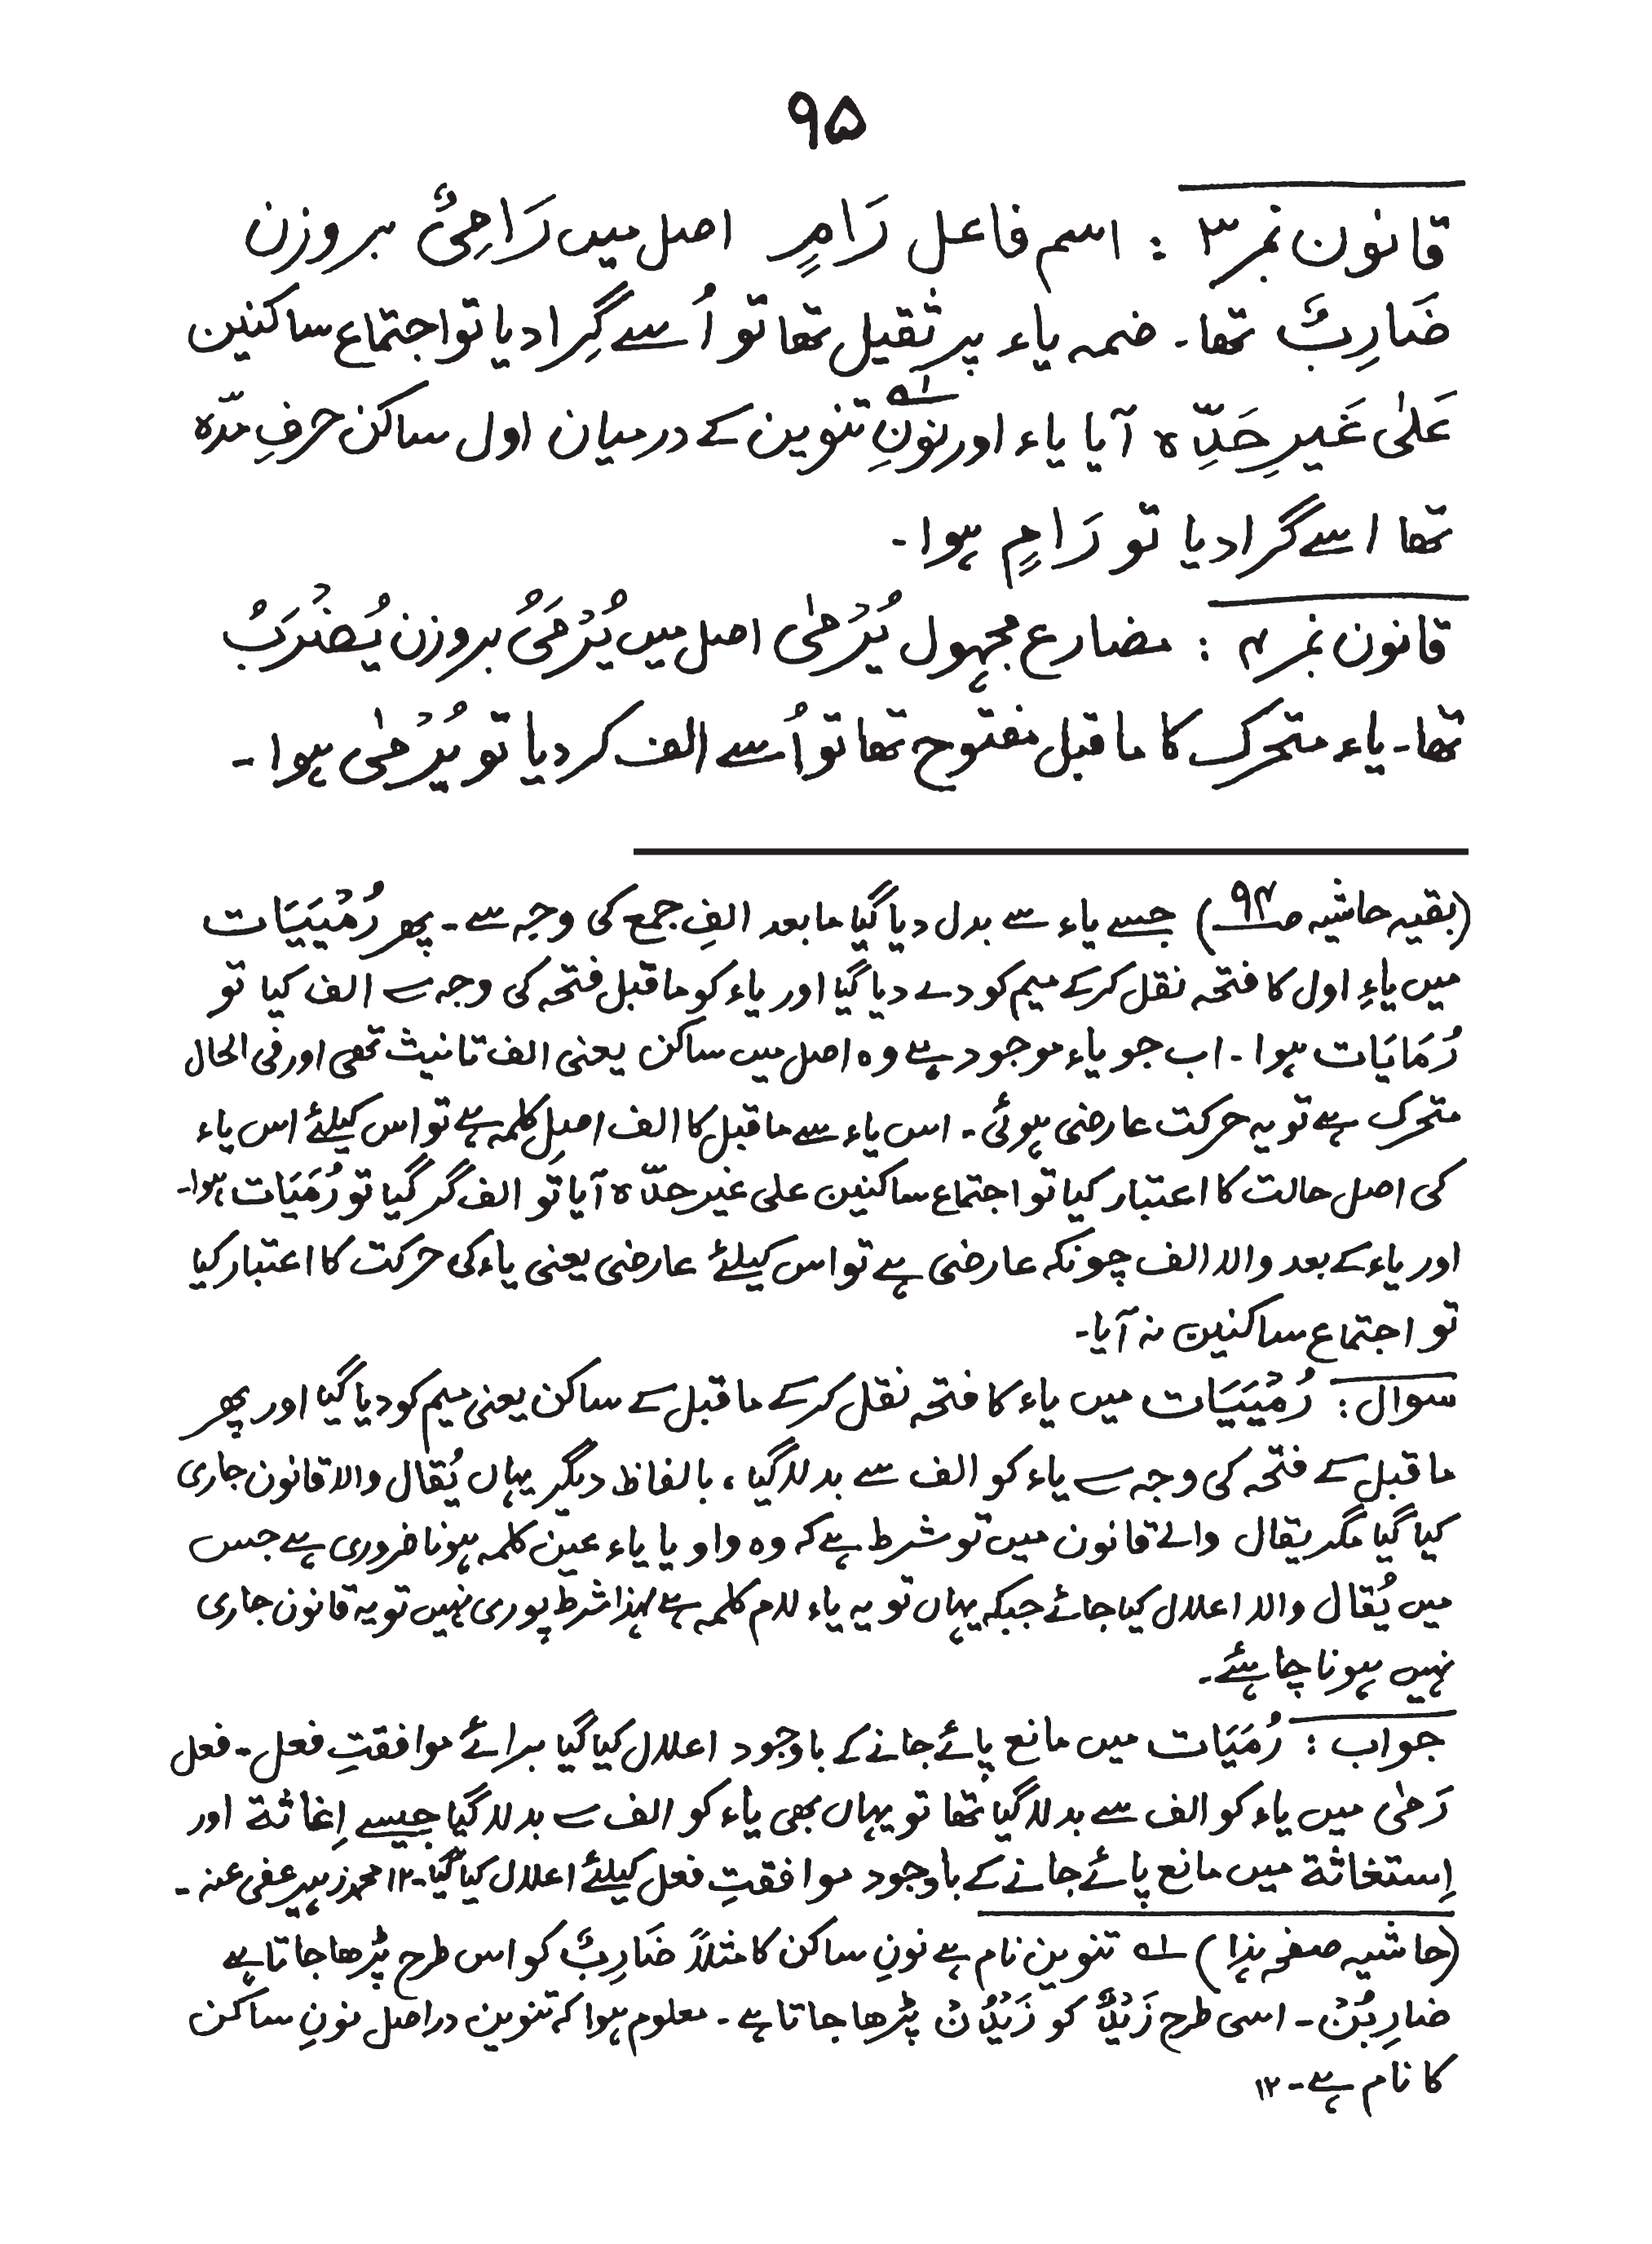 ۹۵
قانون نمبر ۳ : اسم فاعل رَامٍ اصل میں رَامِیٌ بروزن
ضَارِبٌ تھا۔ ضمہ یاء پر ثقیل تھا تو اُسے گِرا دیا تو اجتماع ساکنین
عَلٰی غَیرِ حَدِّہ آیا یاء اور نونِ تنوین ؎۱ کے درمیان اول ساکن حرفِ مدّہ
تھا اسے گرا دیا تو رَامٍ ہوا۔
قانون نمبر ۴ : مضارع مجہول یُرْمٰی اصل میں یُرْمَیُ بروزن یُضْرَبُ
تھا۔ یاء متحرک کا ماقبل مفتوح تھا تو اُسے الف کر دیا تو یُرْمٰی ہوا۔
(بقیہ حاشیہ صـ ۹۴) جسے یاء سے بدل دیا گیا مابعد الفِ جمع کی وجہ سے۔ پھر رُمْیَیَات
میں یاءِ اول کا فتحہ نقل کرکے میم کو دے دیا گیا اور یاء کو ماقبل فتحہ کی وجہ سے الف کیا تو
رُمَایَات ہوا۔ اب جو یاء موجود ہے وہ اصل میں ساکن یعنی الف تانیث تھی اور فی الحال
متحرک ہے تو یہ حرکت عارضی ہوئی۔ اس یاء سے ماقبل کا الف اصلِ کلمہ ہے تو اس کیلئے اس یاء
کی اصل حالت کا اعتبار کیا تو اجتماع ساکنین علی غیر حدّہ آیا تو الف گر گیا تو رُمَیَات ہوا۔
اور یاء کے بعد والا الف چونکہ عارضی ہے تو اس کیلئے عارضی یعنی یاء کی حرکت کا اعتبار کیا
تو اجتماع ساکنین نہ آیا۔
سوال : رُمْیَیَات میں یاء کا فتحہ نقل کرکے ماقبل کے ساکن یعنی میم کو دیا گیا اور پھر
ماقبل کے فتحہ کی وجہ سے یاء کو الف سے بدلا گیا، بالفاظ دیگر یہاں یُقال والا قانون جاری
کیا گیا مگر یقال والے قانون میں تو شرط ہے کہ وہ واو یا یاء عین کلمہ ہونا ضروری ہے جس
میں یُقال والا اعلال کیا جائے جبکہ یہاں تو یہ یاء لام کلمہ ہے لہٰذا شرط پوری نہیں تو یہ قانون جاری
نہیں ہونا چاہئے۔
جواب : رُمَیَات میں مانع پائے جانے کے باوجود اعلال کیا گیا برائے موافقتِ فعل۔ فعل
رَمٰی میں یاء کو الف سے بدلا گیا تھا تو یہاں بھی یاء کو الف سے بدلا گیا جیسے اِغاثۃ اور
اِستغاثۃ میں مانع پائے جانے کے باوجود موافقتِ فعل کیلئے اعلال کیا گیا۔۱۲ محمد زہیر عفی عنہ۔
(حاشیہ صفحہ ہٰذا) ؎۱ تنوین نام ہے نونِ ساکن کا مثلاً ضَارِبٌ کو اس طرح پڑھا جاتا ہے
ضارِبُنْ۔ اسی طرح زَیْدٌ کو زَیْدُنْ پڑھا جاتا ہے۔ معلوم ہوا کہ تنوین دراصل نونِ ساکن
کا نام ہے۔۱۲